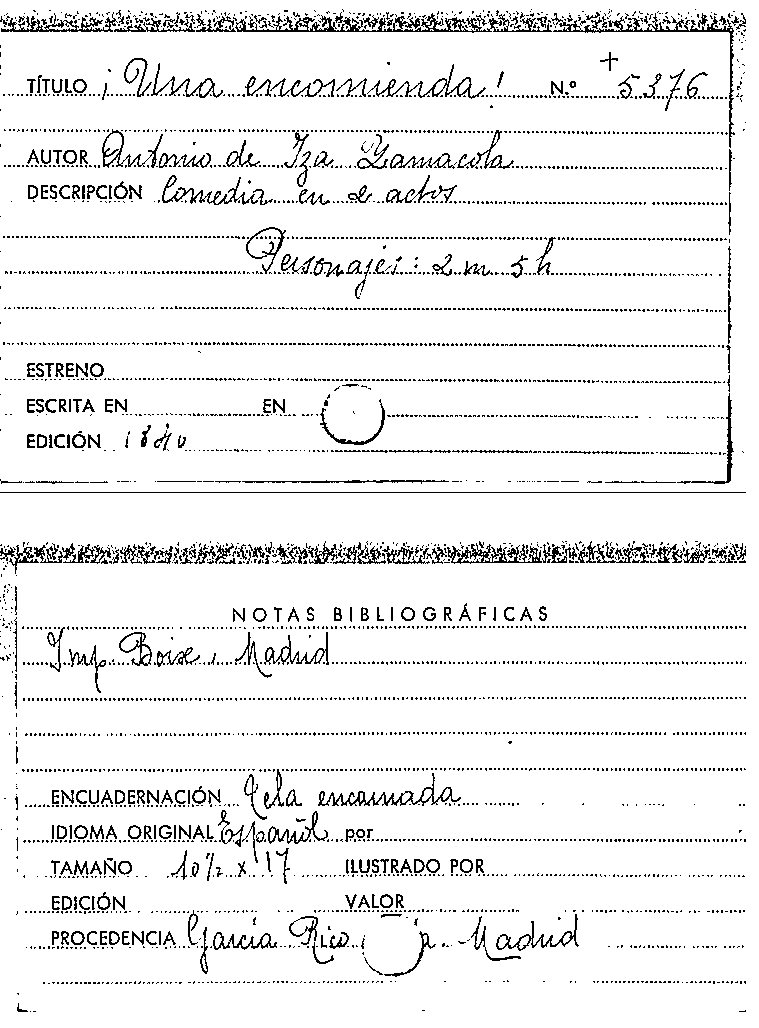 TÍTULO ¡Una encomienda! N.º + 5376
AUTOR Antonio de Iza Zamacola
DESCRIPCIÓN Comedia en 2 actos
Personajes: 2 m 5 h
ESTRENO
ESCRITA EN EN
EDICIÓN 1840
NOTAS BIBLIOGRÁFICAS
Imp. Boise, Madrid
ENCUADERNACIÓN Tela encarnada
IDIOMA ORIGINAL Español por
TAMAÑO 10½ x 17 ILUSTRADO POR
EDICIÓN VALOR
PROCEDENCIA García Rico Madrid